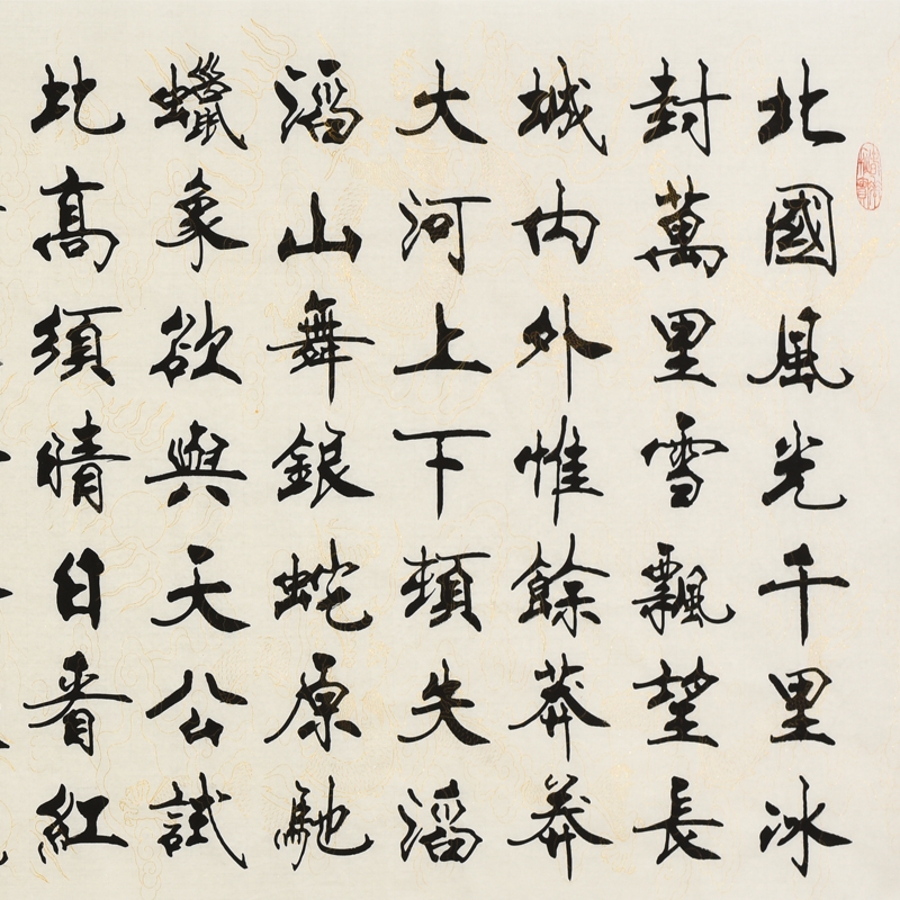 北國風光千里冰
封萬里雪飄望長
城內外惟餘莽莽
大河上下頓失滔
滔山舞銀蛇原馳
蠟象欲與天公試
比高須晴日看紅